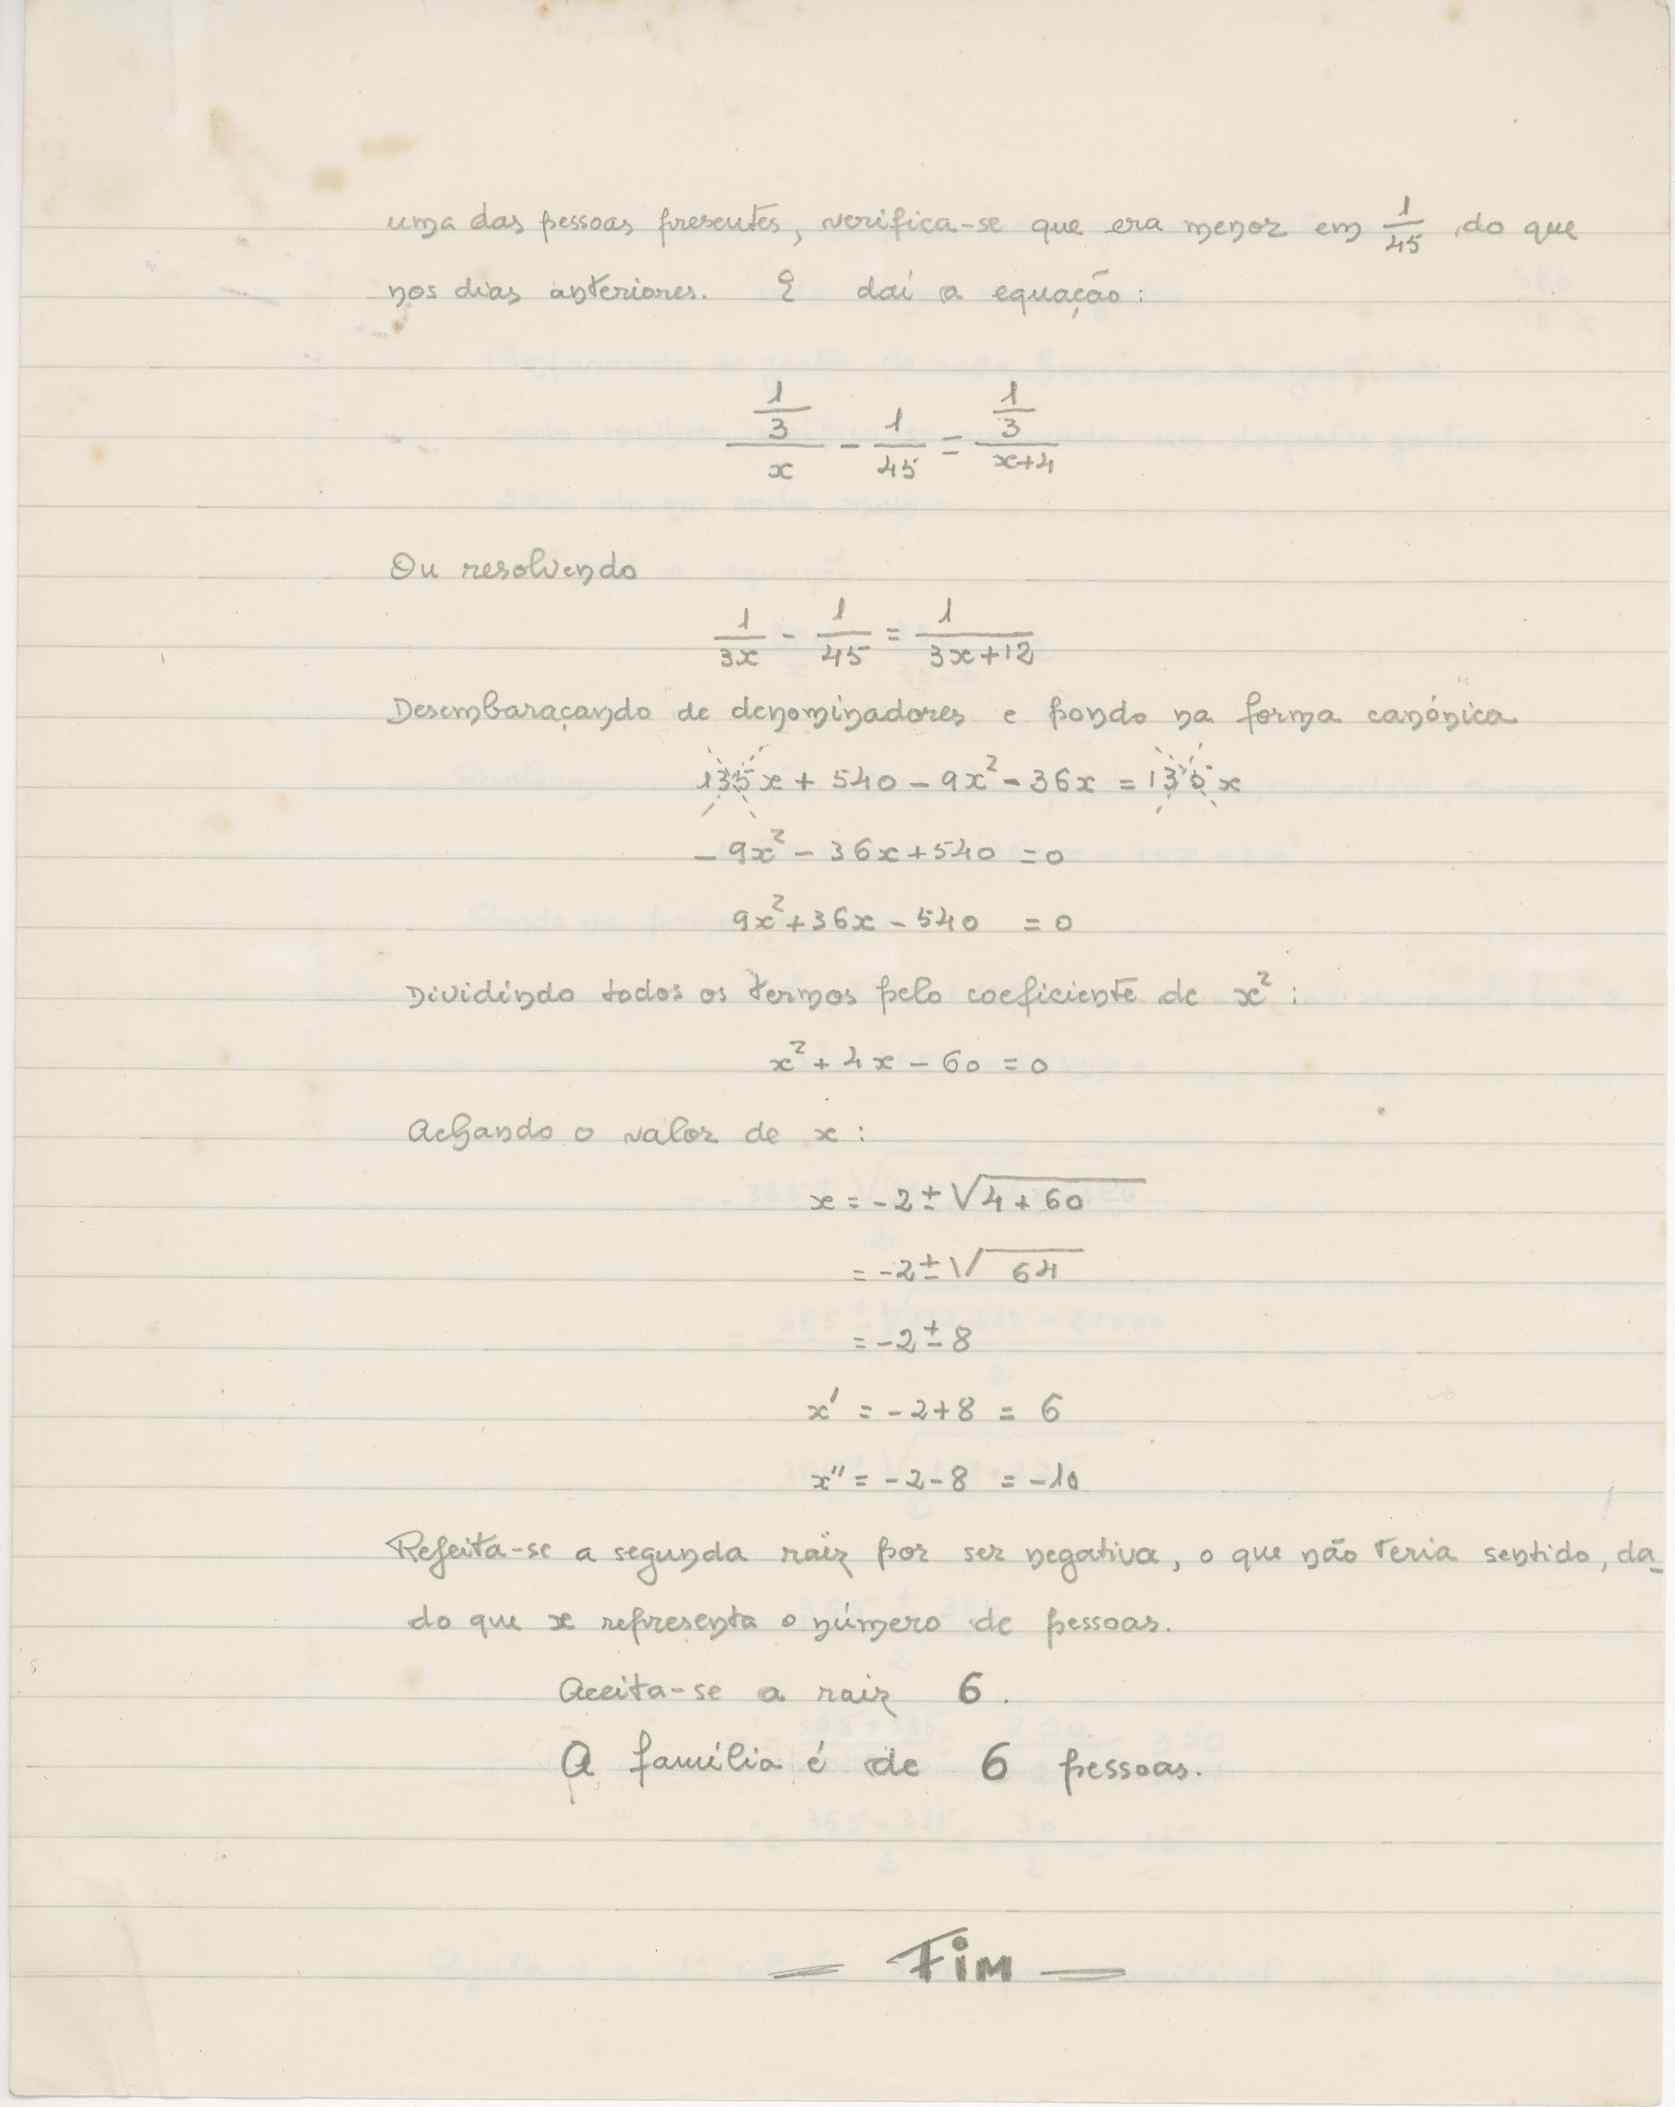 uma das pessoas presentes, verifica-se que era menor em 1/45 do que
nos dias anteriores. E daí a equação:
(1/3)/x - 1/45 = (1/3)/(x+4)
Ou resolvendo
1/3x - 1/45 = 1/(3x+12)
Desembaraçando de denominadores e pondo na forma canónica
135x + 540 - 9x² - 36x = 135x
- 9x² - 36x + 540 = 0
9x² + 36x - 540 = 0
Dividindo todos os termos pelo coeficiente de x²:
x² + 4x - 60 = 0
Achando o valor de x:
x = -2 ± √(4 + 60)
= -2 ± √64
= -2 ± 8
x' = -2+8 = 6
x'' = -2-8 = -10
Rejeita-se a segunda raiz por ser negativa, o que não teria sentido, da-
do que x representa o número de pessoas.
Aceita-se a raiz 6.
A família é de 6 pessoas.
— Fim —